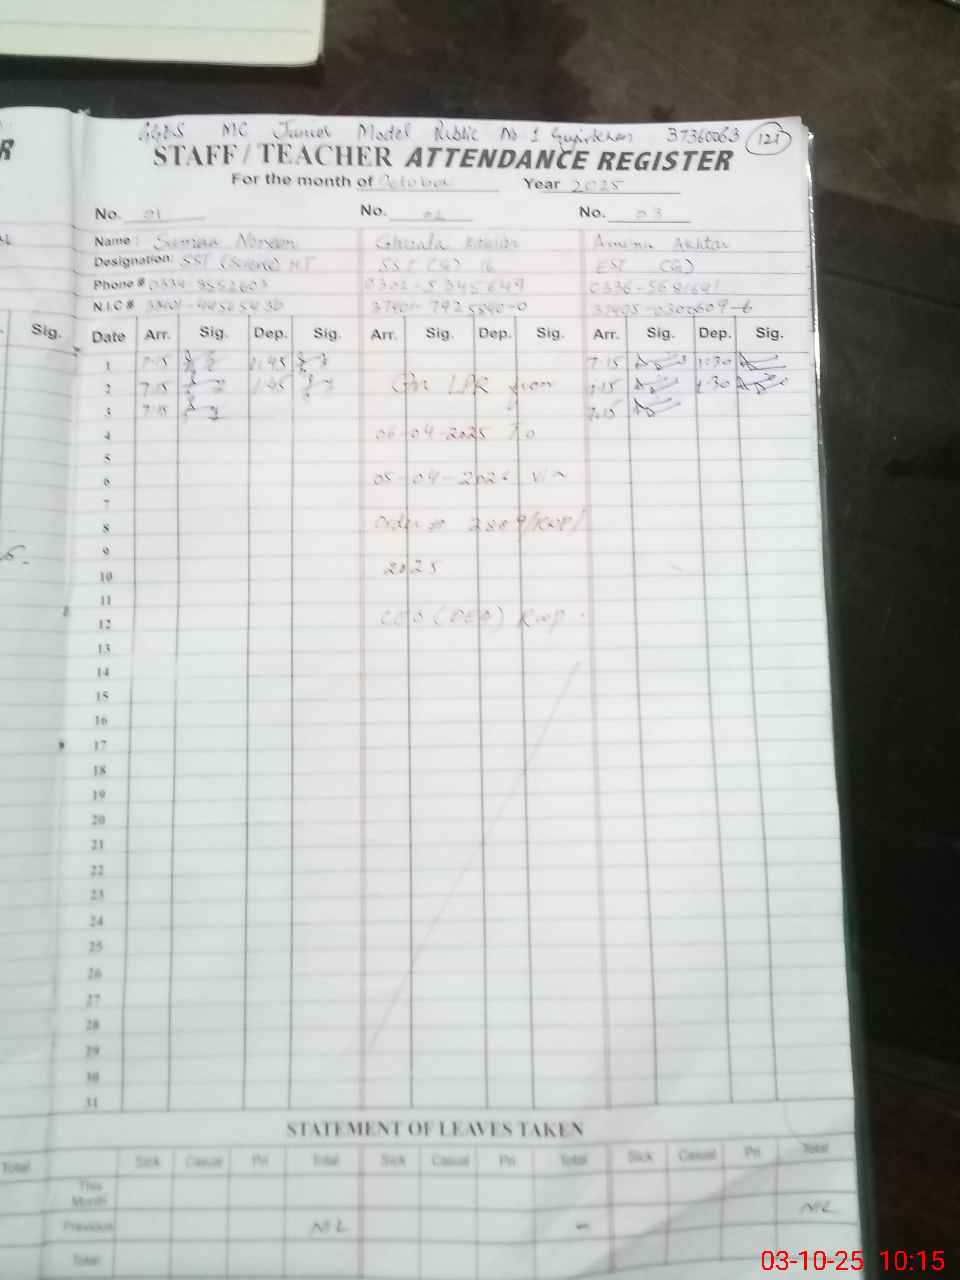 GGES MC Junior Model Public No 1 Gujarkhan 37360063 121
R STAFF / TEACHER ATTENDANCE REGISTER
For the month of October Year 2025
No. 01 No. 02 No. 03
Name: Name Noreen Ghazala Amina Akhtar
Designation: SST (Science) H.T SST (G) 16 EST (G)
Phone # 0302-5345649
N.I.C #
Sig. Date Arr. Sig. Dep. Sig. Arr. Sig. Dep. Sig. Arr. Sig. Dep. Sig.
1 7:15 1:45 7:15 1:30
2 7:15 1:45 On LPR from 7:15 1:30
3 7:15 7:15
4 06-04-2025 To
5
6 05-04-2026 via
7
8 Order # 2809/RWP/
9
10 2025
11
12 CEO (DEA) Rwp.
13
14
15
16
17
18
19
20
21
22
23
24
25
26
27
28
29
30
31
STATEMENT OF LEAVES TAKEN
Total Sick Casual Pri Total Sick Casual Pri Total Sick Casual Pri Total
This Month NIL
Previous NIL
Total
03-10-25 10:15